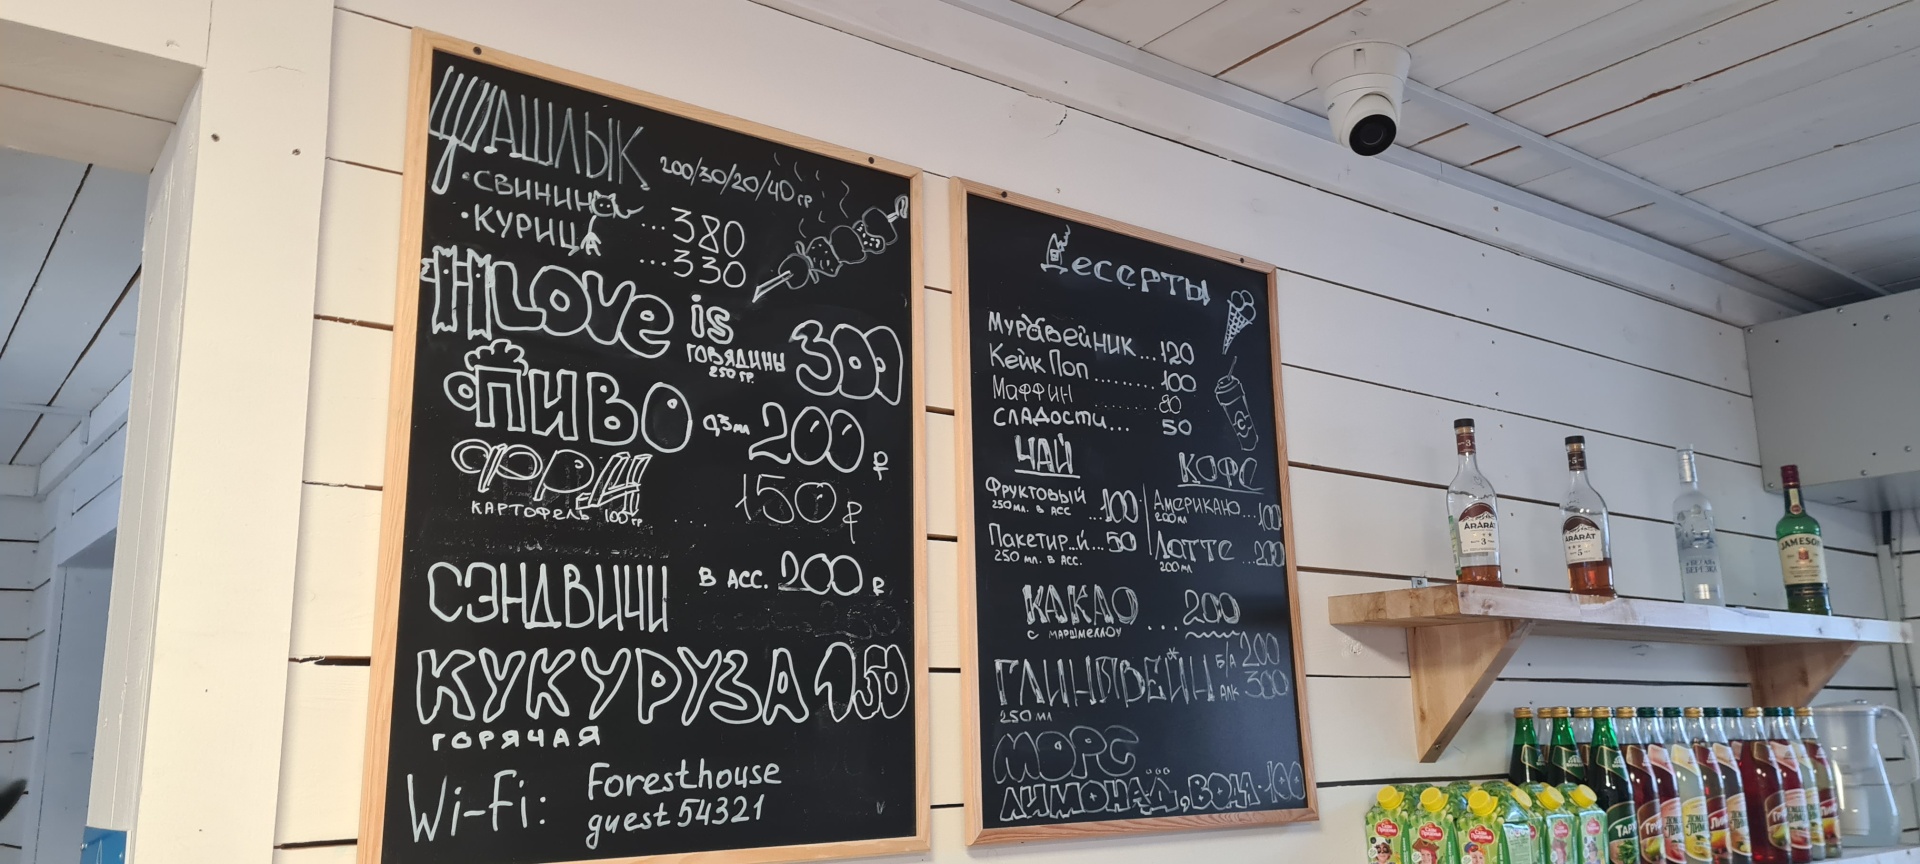 ШАШЛЫК 200/30/20/40 гр
• СВИНИНА ... 380
• КУРИЦА ... 330
Love is ГОВЯДИНЫ 250 ГР. 300
ПИВО 0,5 мл 200 ₽
ФРИ 150 ₽
КАРТОФЕЛЬ 100 гр ....
СЭНДВИЧИ В АСС. 200 ₽
КУКУРУЗА 150
ГОРЯЧАЯ
Wi-Fi: Foresthouse
guest 54321
Десерты
Муравейник...120
Кейк Поп.........100
Маффин ........ 80
Сладости... 50
ЧАЙ
Фруктовый ...100
250 мл. в асс
Пакетир..й...50
250 мл. в асс.
КОФЕ
Американо...100
200 мл
Латте ...200
200 мл
КАКАО ... 200
с маршмеллоу
ГЛИНТВЕЙН Б/А 200
АЛК 300
250 мл
МОРС
ЛИМОНАД, ВОДА-100
ARARAT
3
ARARAT
5
JAMESON